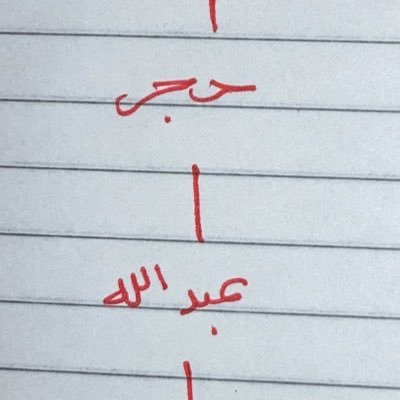 حجر
عبد الله